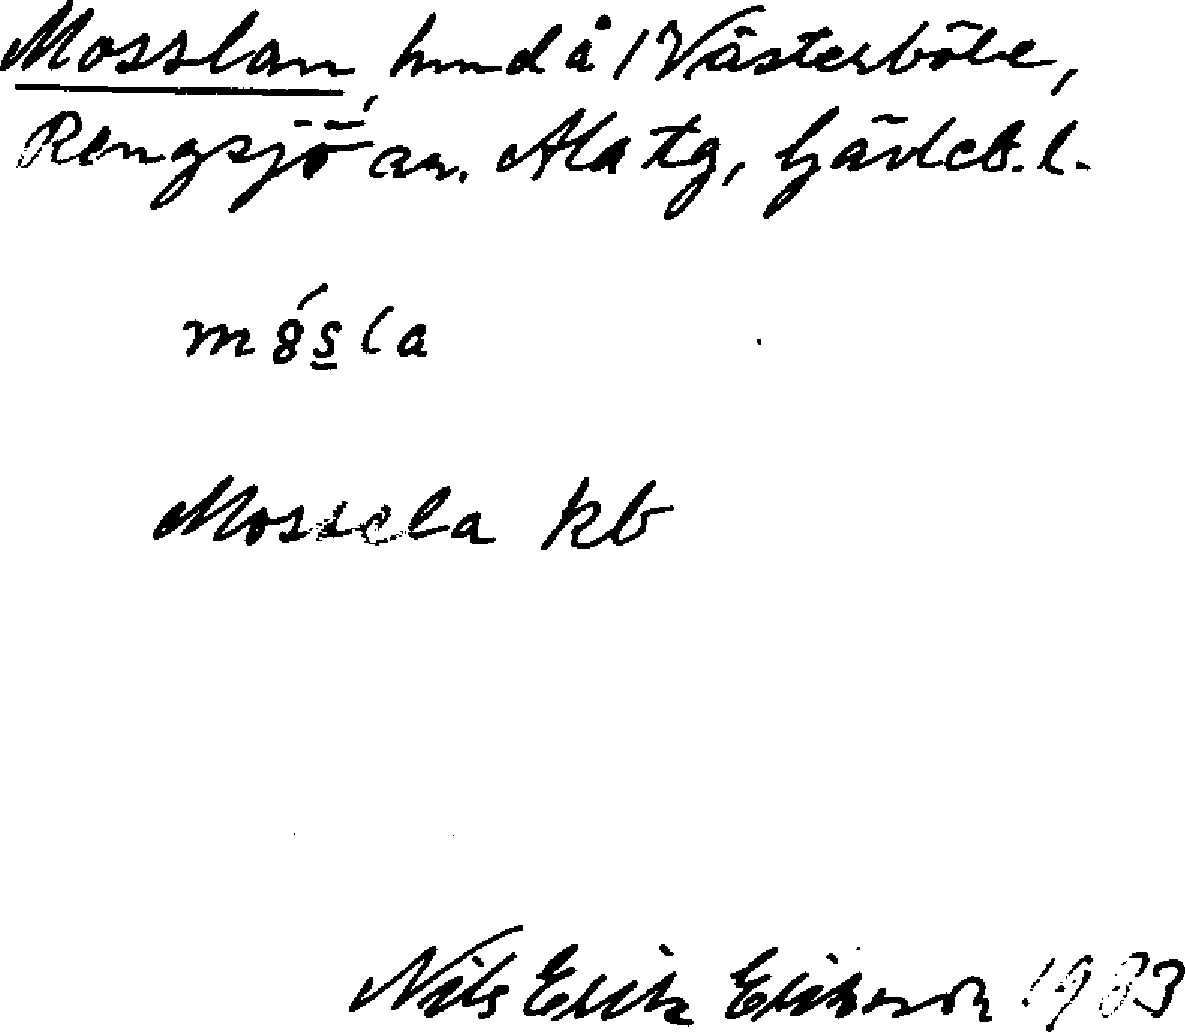 Mosslan, hmd å 1 Västerböle,
Rengsjö sn. Ala tg, Gävleb. l.
m8́s̲la
Mossela kb
Nils Erik Eriksson 1983